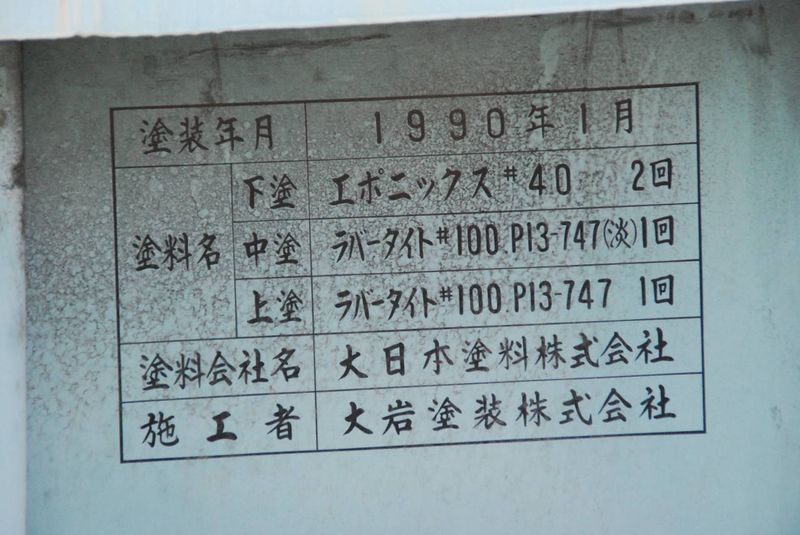 塗装年月 1990年1月
塗料名 下塗 エポニックス#40 2回
中塗 ラバータイト#100.P13-747(淡)1回
上塗 ラバータイト#100.P13-747 1回
塗料会社名 大日本塗料株式会社
施工者 大岩塗装株式会社